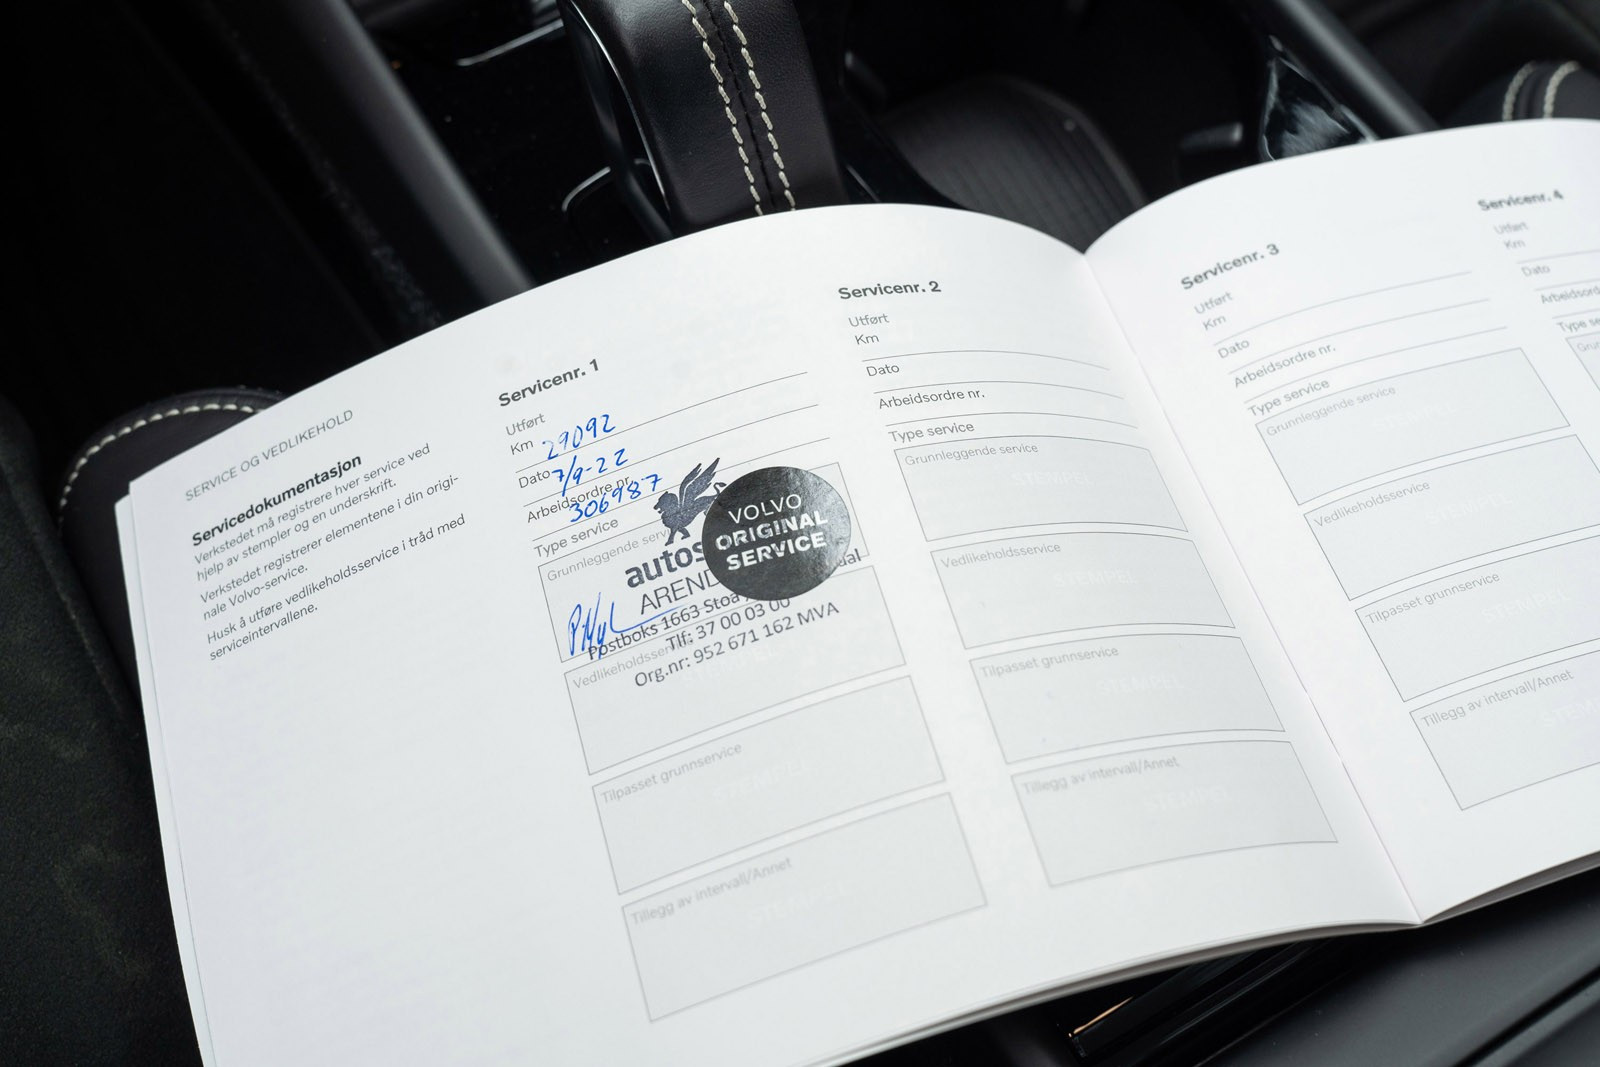 SERVICE OG VEDLIKEHOLD
Servicedokumentasjon
Verkstedet må registrere hver service ved
hjelp av stempler og en underskrift.
Verkstedet registrerer elementene i din origi-
nale Volvo-service.
Husk å utføre vedlikeholdsservice i tråd med
serviceintervallene.
Servicenr. 1
Utført
Km 29092
Dato 7/9-22
Arbeidsordre nr.
306987
Type service
Grunnleggende
VOLVO
ORIGINAL
SERVICE
Postboks 1663 Stoa
Tlf: 37 00 03 00
Org.nr: 952 671 162 MVA
Vedlikeholdsservice
Tilpasset grunnservice
STEMPEL
Tillegg av intervall/Annet
STEMPEL
Servicenr. 2
Utført
Km
Dato
Arbeidsordre nr.
Type service
Grunnleggende service
STEMPEL
Vedlikeholdsservice
STEMPEL
Tilpasset grunnservice
STEMPEL
Tillegg av intervall/Annet
STEMPEL
Servicenr. 3
Utført
Km
Dato
Arbeidsordre nr.
Type service
Grunnleggende service
STEMPEL
Vedlikeholdsservice
STEMPEL
Tilpasset grunnservice
STEMPEL
Tillegg av intervall/Annet
Servicenr. 4
Utført
Km
Dato